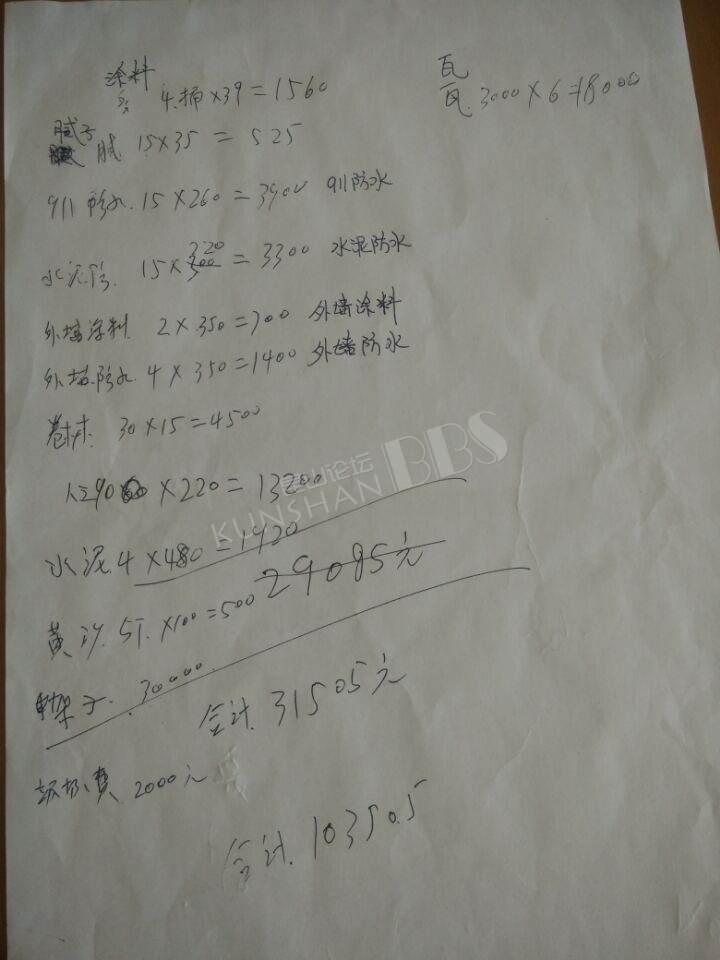 涂料
4.捅×39=1560
瓦
瓦.3000×6=18000
腻子
腻 15×35 = 525
911防水.15×260=3900 911防水
水泥防. 15×220=3300 水泥防水
300
外墙涂料 2×350=700 外墙涂料
外墙.防水.4×350=1400 外墙防水
卷材. 30×15=4500
人工90 ×220=13200
昆山论坛
KUNSHAN BBS
水泥.4×480=1920
29085元
黄沙.5T.×100=500
架子.30000
合计.31505元
垃圾费.2000元
合计.10350.5